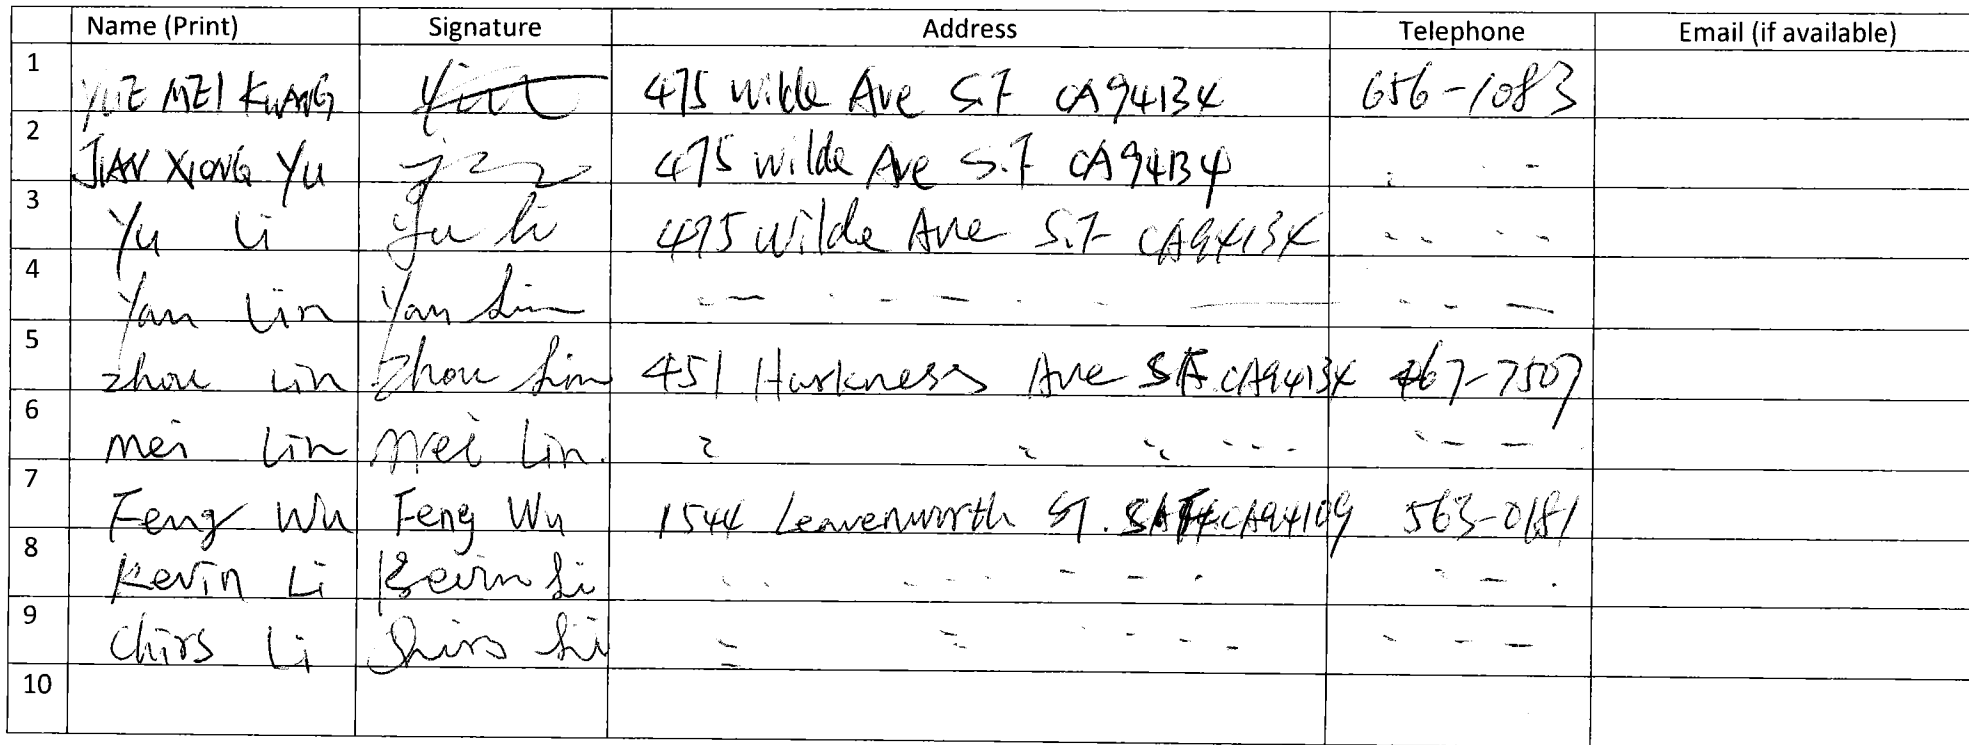 Name (Print) Signature Address Telephone Email (if available)
1 YUE MEI KUANG 475 Wilde Ave S.F CA94134 656-1083
2 JIAN XIONG YU 475 Wilde Ave S.F CA94134
3 Yu Li Yu Li 475 Wilde Ave S.F CA94134
4 Yan Lin Yan Lin
5 Zhou Lin Zhou Lin 451 Harkness Ave SF CA94134 467-7507
6 Mei Lin Mei Lin.
7 Feng Wu Feng Wu 1544 Leavenworth ST. CA94109 563-0181
8 Kevin Li Kevin Li
9 Chirs Li Chirs Li
10